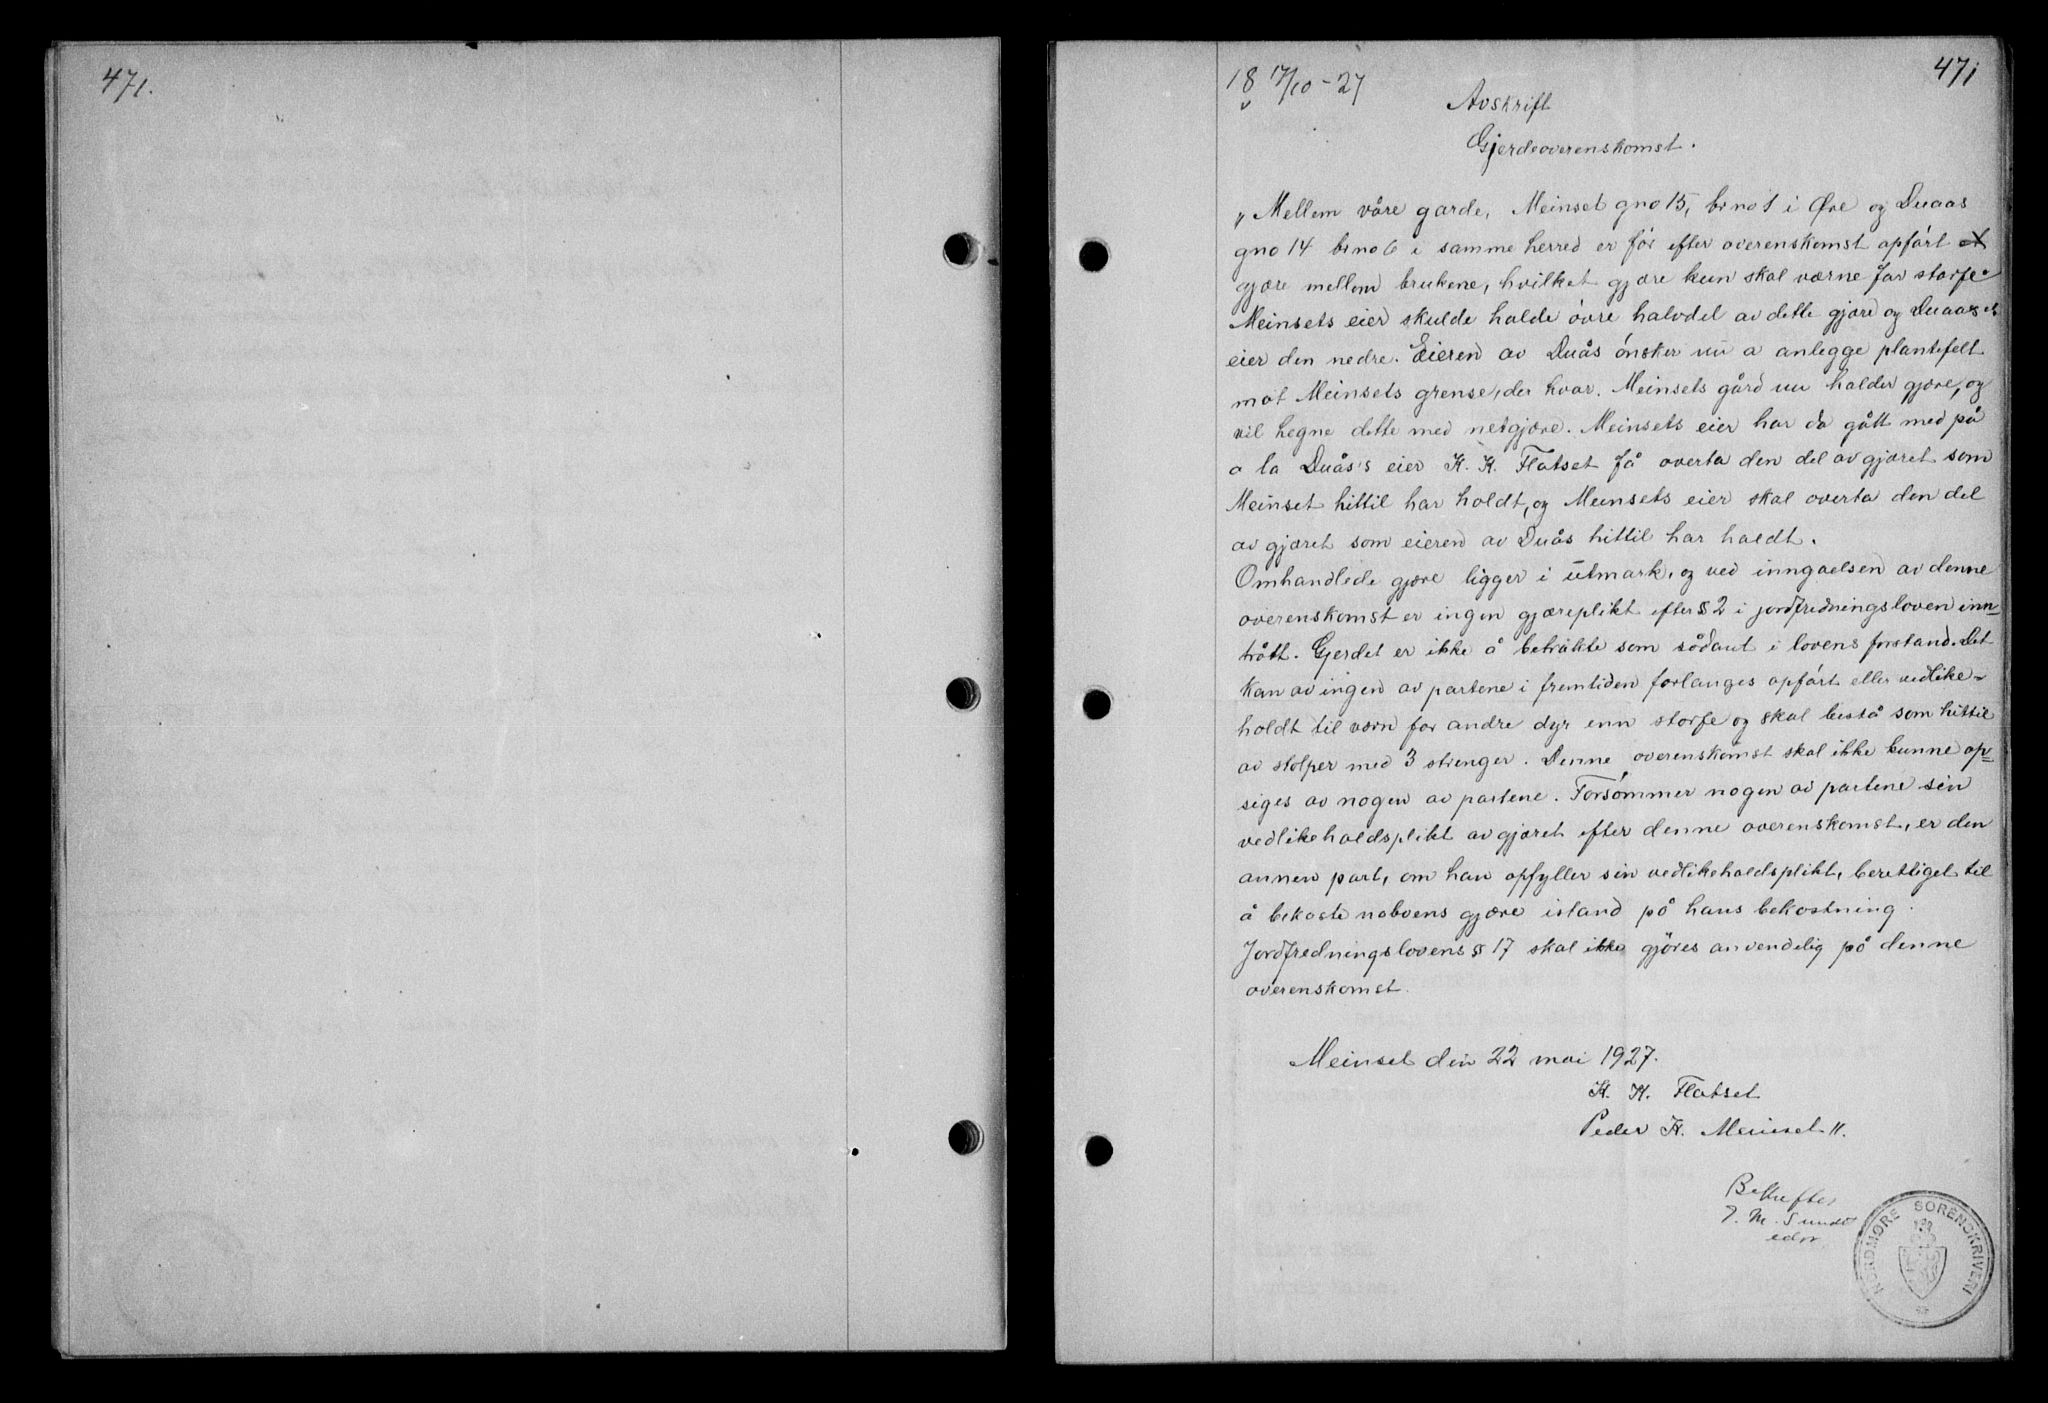 471.
471
18 17/10-27
Avskrift
Gjerdeoverenskomst.
"Mellem våre garde, Meinset gno 15, brno 1 i Øre og Duaas
gno 14 brno 6 i samme herred er för efter overenskomst opfört et
gjære mellem brukene, hvilket gjære kun skal værne for storfe.
Meinsets eier skulde holde övre halvdel av dette gjære og Duaas
eier den nedre. Eieren av Duås önsker nu a anlegge plantefelt
mot Meinsets grense, der hvor Meinsets gård nu holder gjære, og
vil hegne dette med netgjære. Meinsets eier har da gått med på
a la Duås's eier K. K. Flatset få overta den del av gjæret som
Meinset hittil har holdt, og Meinsets eier skal overta den del
av gjæret som eieren av Duås hittil har holdt.
Omhandlede gjære ligger i utmark, og ved inngaelsen av denne
overenskomst er ingen gjæreplikt efter § 2 i jordfredningsloven inn-
trått. Gjerdet er ikke å betrakte som sådant i lovens forstand. Det
kan av ingen av partene i fremtiden forlanges opfört eller vedlike-
holdt til værn for andre dyr enn storfe og skal bestå som hittil
av stolper med 3 strenger. Denne overenskomst skal ikke kunne op-
siges av nogen av partene. Forsömmer nogen av partene sin
vedlikeholdsplikt av gjæret efter denne overenskomst, er den
annen part, om han opfyller sin vedlikeholdsplikt, berettiget til
å bekoste naboens gjære istand på hans bekostning.
Jordfredningslovens § 17 skal ikke gjöres anvendelig på denne
overenskomst.
Meinset den 22 mai 1927.
K. K. Flatset
Peder K. Meinset".
Bekreftes
J. M. Sunde
edsv.
NORDMØRE SORENSKRIVERI